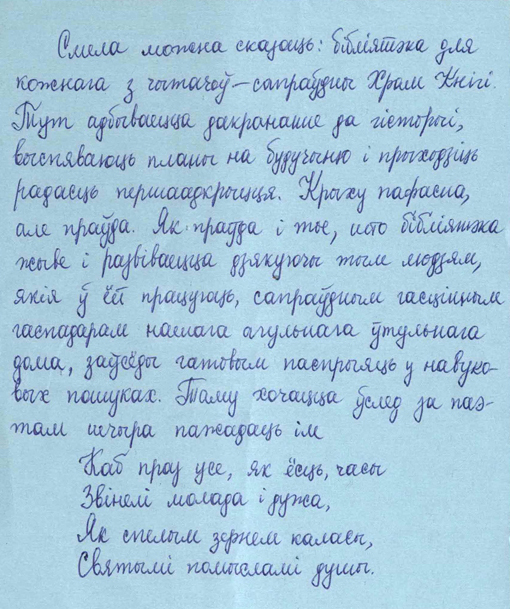 Смела можна сказаць: бібліятэка для
кожнага з чытачоў — сапраўдны Храм Кнігі.
Тут адбываецца дакрананне да гісторыі,
выспяваюць планы на будучыню і прыходзіць
радасць першаадкрыцця. Крыху пафасна,
але праўда. Як праўда і тое, што бібліятэка
жыве і развіваецца дзякуючы тым людзям,
якія ў ёй працуюць, сапраўдным гасцінным
гаспадарам нашага агульнага ўтульнага
дома, заўсёды гатовым паспрыяць у навуко-
вых пошуках. Таму хочацца ўслед за паэ-
там шчыра пажадаць ім
Каб праз усе, як ёсць, часы
Звінелі молада і дужа,
Як спелым зернем каласы,
Святымі помысламі душы.